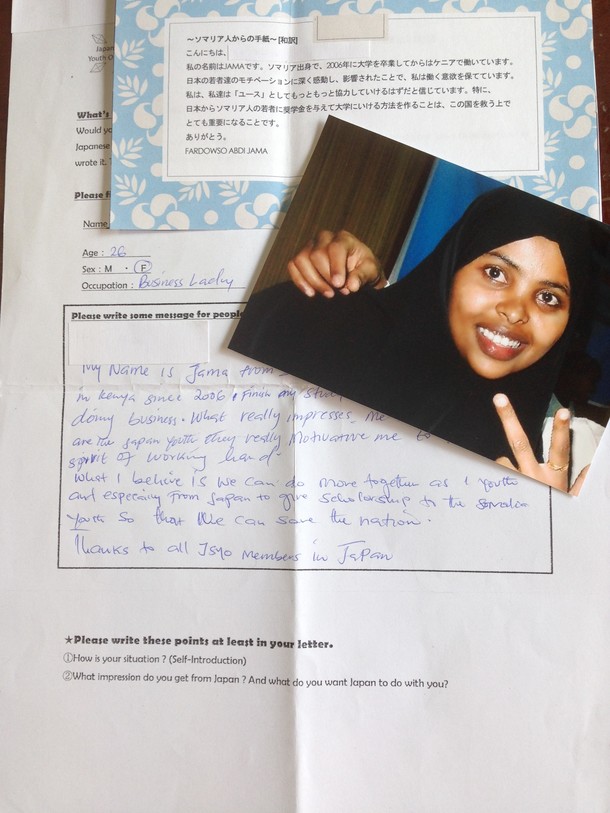 ～ソマリア人からの手紙～[和訳]
こんにちは、
私の名前はJAMAです。ソマリア出身で、2006年に大学を卒業してからはケニアで働いています。
日本の若者達のモチベーションに深く感動し、影響されたことで、私は働く意欲を保てています。
私は、私達は「ユース」としてもっともっと協力していけるはずだと信じています。特に、
日本からソマリア人の若者に奨学金を与えて大学にいける方法を作ることは、この国を救う上で
とても重要になることです。
ありがとう。
FARDOWSO ABDI JAMA
Japan
Youth O
What's
Would yo
Japanese
wrote it.
Please fi
Name
Age : 26
Sex : M ・ F
Occupation : Business Lady
Please write some message for people
My Name is Jama from
in Kenya since 2006. Finish my
doing business. What really impresses me
are the Japan youth they really Motivative me to
spirit of working hand
What I believe is we can do more together as a youth
and especialy from Japan to give scholarship to the somalia
youth so that we can save the nation.
Thanks to all Jsyo members in Japan
★Please write these points at least in your letter.
①How is your situation ? (Self-Introduction)
②What impression do you get from Japan ? And what do you want Japan to do with you?